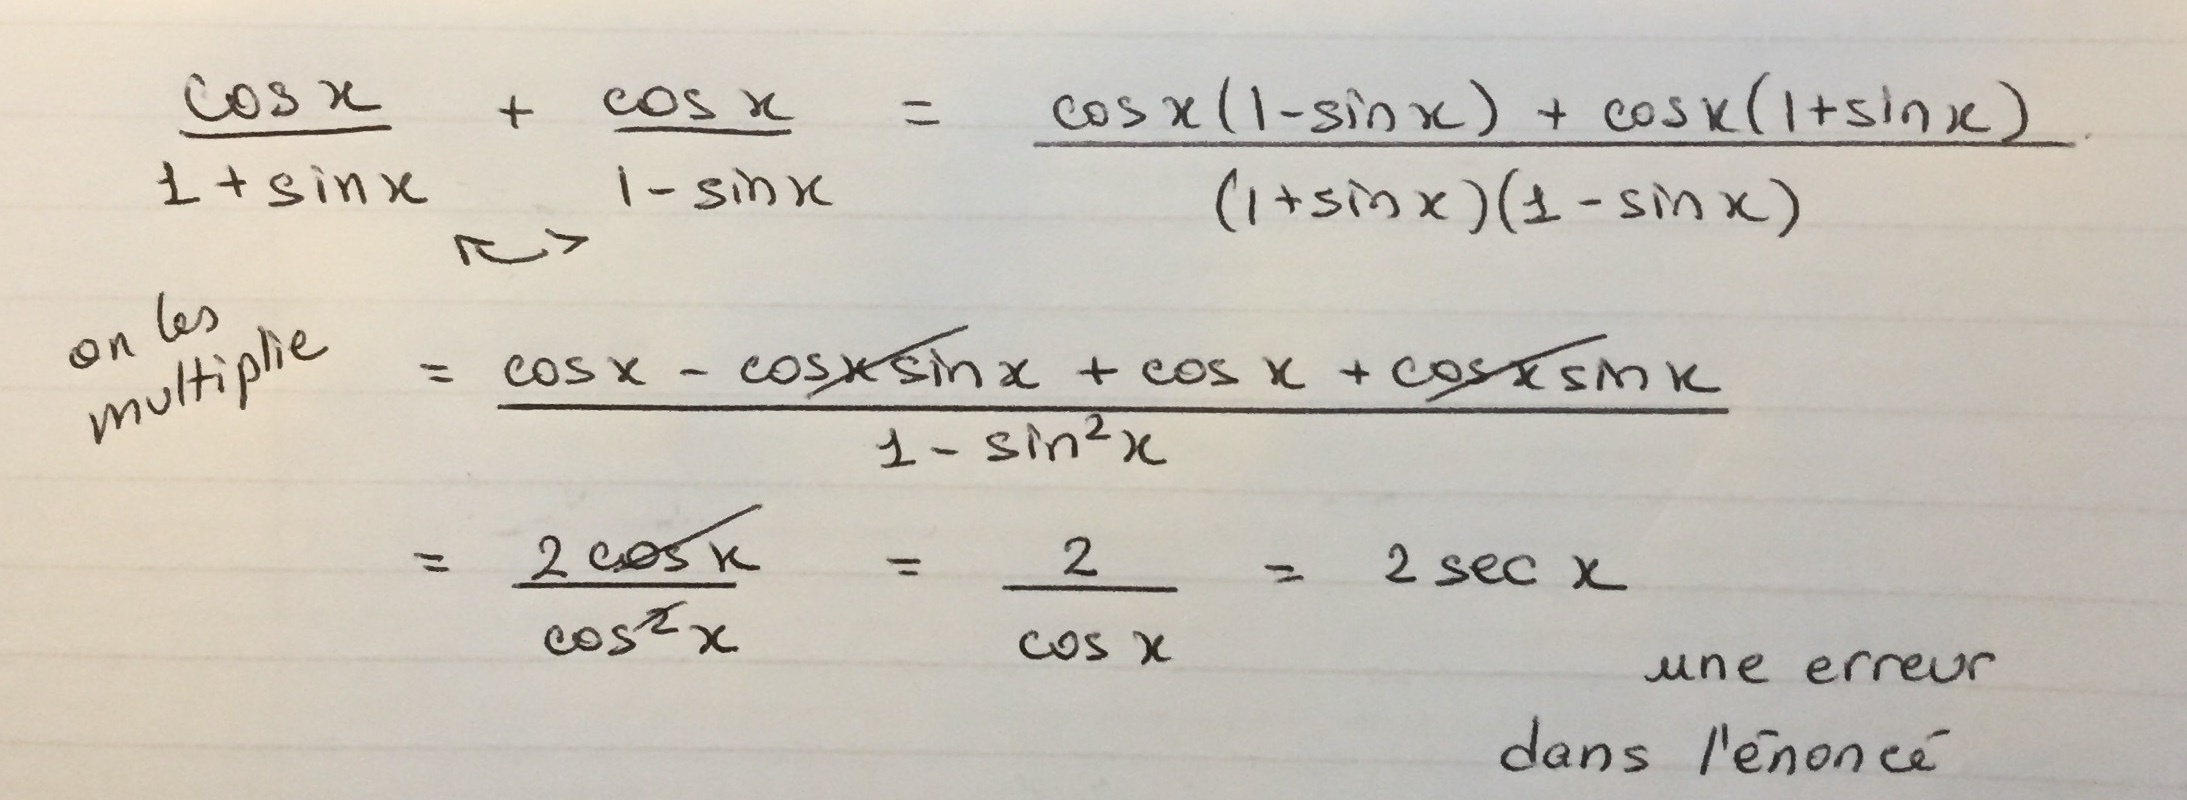 cos x / 1 + sin x + cos x / 1 - sin x = cos x (1 - sin x) + cos x (1 + sin x) / (1 + sin x)(1 - sin x)
on les
multiplie
= cos x - cos x sin x + cos x + cos x sin x / 1 - sin² x
= 2 cos x / cos² x = 2 / cos x = 2 sec x
une erreur
dans l'énoncé